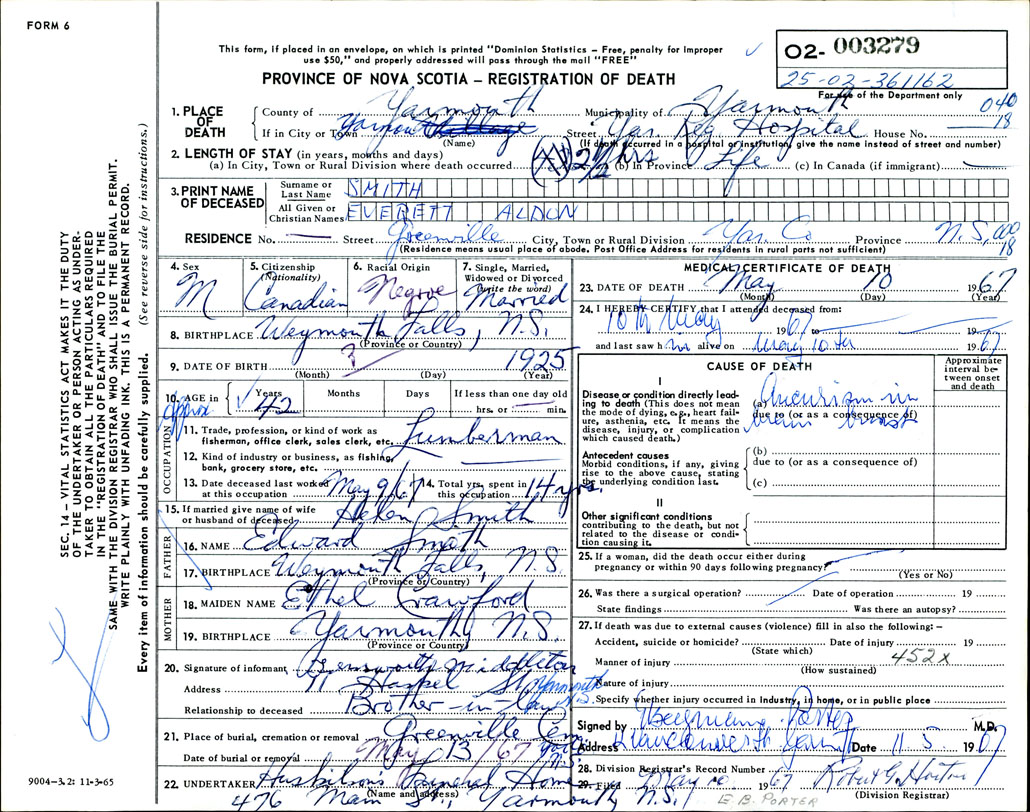 FORM 6
This form, if placed in an envelope, on which is printed "Dominion Statistics – Free, penalty for improper
use $50," and properly addressed will pass through the mail "FREE"
O2- 003279
25-02-361162
For use of the Department only
PROVINCE OF NOVA SCOTIA – REGISTRATION OF DEATH
040
18
1. PLACE OF DEATH
County of Yarmouth Municipality of Yarmouth
If in City or Town Yarmouth Street Yar. Reg Hospital House No.
(Name) (If death occurred in a hospital or institution, give the name instead of street and number)
2. LENGTH OF STAY (in years, months and days)
(a) In City, Town or Rural Division where death occurred hrs (b) In Province Life (c) In Canada (if immigrant)
3. PRINT NAME OF DECEASED
Surname or Last Name SMITH
All Given or Christian Names EVERETT ALDON
RESIDENCE No. Street Greenville City, Town or Rural Division Yar. Co Province N.S. 000
18
(Residence means usual place of abode. Post Office Address for residents in rural parts not sufficient)
4. Sex M
5. Citizenship (Nationality) Canadian
6. Racial Origin Negroe
7. Single, Married, Widowed or Divorced (write the word) Married
8. BIRTHPLACE Weymouth Falls, N.S.
(Province or Country)
9. DATE OF BIRTH ? 1925
(Month) (Day) (Year)
10. AGE in Years Months Days If less than one day old
approx 42 hrs. or min.
OCCUPATION
11. Trade, profession, or kind of work as
fisherman, office clerk, sales clerk, etc. Lumberman
12. Kind of industry or business, as fishing,
bank, grocery store, etc.
13. Date deceased last worked
at this occupation May 9/67
14. Total yrs. spent in
this occupation 14 yrs.
15. If married give name of wife
or husband of deceased Helen Smith
FATHER
16. NAME Edward Smith
17. BIRTHPLACE Weymouth Falls, N.S.
(Province or Country)
MOTHER
18. MAIDEN NAME Ethel Crawford
19. BIRTHPLACE Yarmouth, N.S.
(Province or Country)
20. Signature of informant Middleton
Address St Yarmouth N.S.
Relationship to deceased Brother-in-law
21. Place of burial, cremation or removal Greenville Cem
Date of burial or removal May 13/67
22. UNDERTAKER Funeral Home
(Name and address)
476 Main St., Yarmouth N.S.
MEDICAL CERTIFICATE OF DEATH
23. DATE OF DEATH May 10 1967
(Month) (Day) (Year)
24. I HEREBY CERTIFY that I attended deceased from:
10th May 1967 to 19
and last saw him alive on May 10th 1967
CAUSE OF DEATH
Approximate interval between onset and death
I
Disease or condition directly leading to death (This does not mean
the mode of dying, e.g., heart failure, asthenia, etc. It means the
disease, injury, or complication
which caused death.)
(a)
due to (or as a consequence of)
Antecedent causes
Morbid conditions, if any, giving
rise to the above cause, stating
the underlying condition last.
(b)
due to (or as a consequence of)
(c)
II
Other significant conditions
contributing to the death, but not
related to the disease or condition causing it.
25. If a woman, did the death occur either during
pregnancy or within 90 days following pregnancy?
(Yes or No)
26. Was there a surgical operation? Date of operation 19
State findings Was there an autopsy?
27. If death was due to external causes (violence) fill in also the following: –
Accident, suicide or homicide? Date of injury 19
(State which)
452X
Manner of injury
(How sustained)
Nature of injury
Specify whether injury occurred in Industry, in home, or in public place
Signed by Porter M.D.
Address Date 11 5 1967
28. Division Registrar's Record Number
29. Filed May 10 1967
(Division Registrar)
E.B. PORTER
SEC. 14 – VITAL STATISTICS ACT MAKES IT THE DUTY
OF THE UNDERTAKER OR PERSON ACTING AS UNDER-
TAKER TO OBTAIN ALL THE PARTICULARS REQUIRED
IN THE "REGISTRATION OF DEATH" AND TO FILE THE
SAME WITH THE DIVISION REGISTRAR WHO SHALL ISSUE THE BURIAL PERMIT.
WRITE PLAINLY WITH UNFADING INK. THIS IS A PERMANENT RECORD.
Every item of information should be carefully supplied. (See reverse side for instructions.)
9004-3.2: 11-3-65